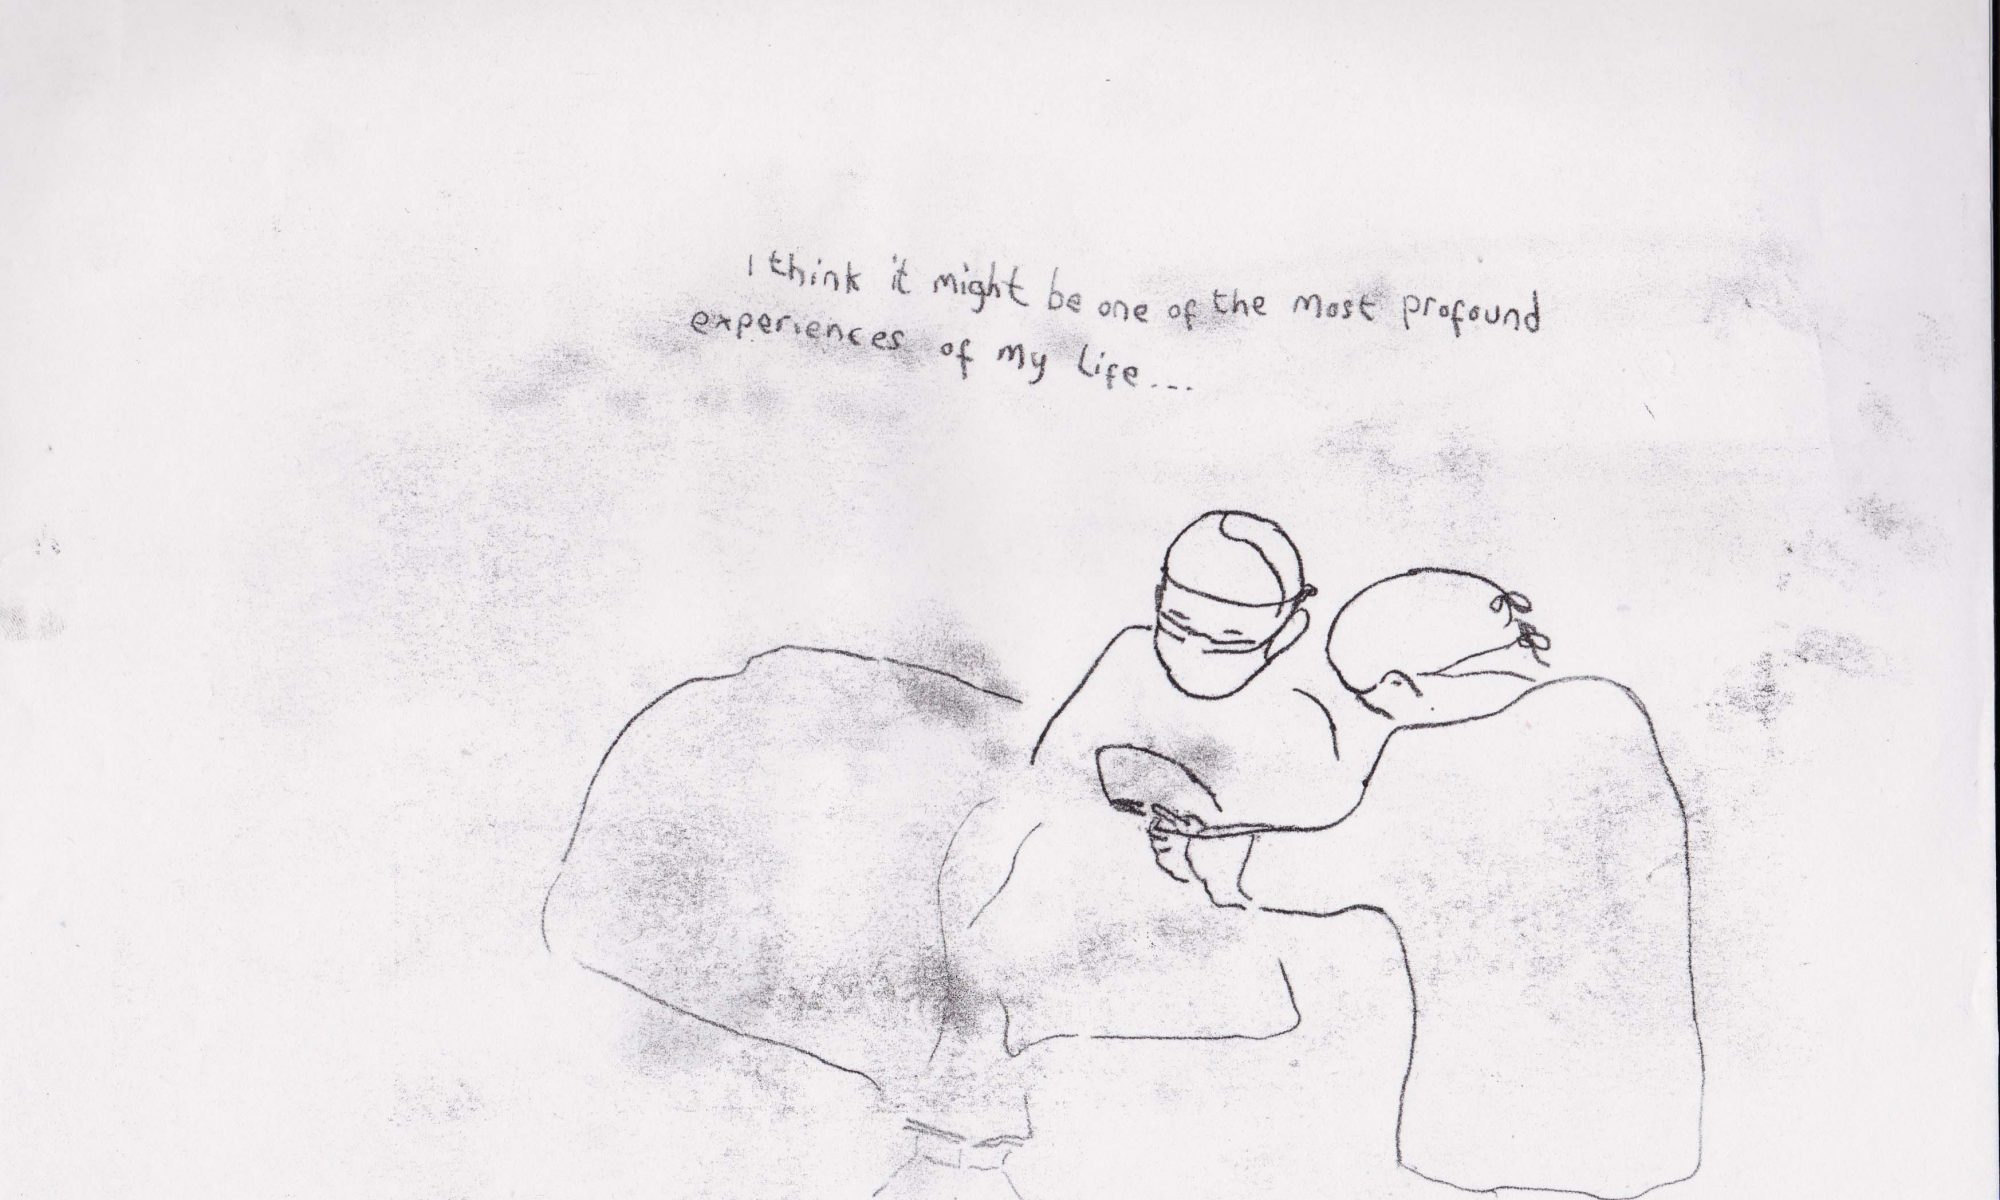 I think it might be one of the most profound
experiences of my life...